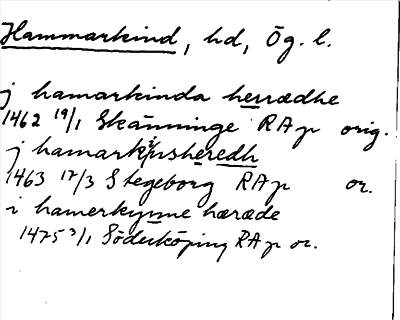 Hammarkind, hd, Ög. l.
j hamarkinda herrædhe
1462 19/1 Skänninge RAp orig.
j hamarkinsheredh
1463 17/3 Stegeborg RAp or.
i hamerkynne hæræde
1475 3/1 Söderköping RAp or.